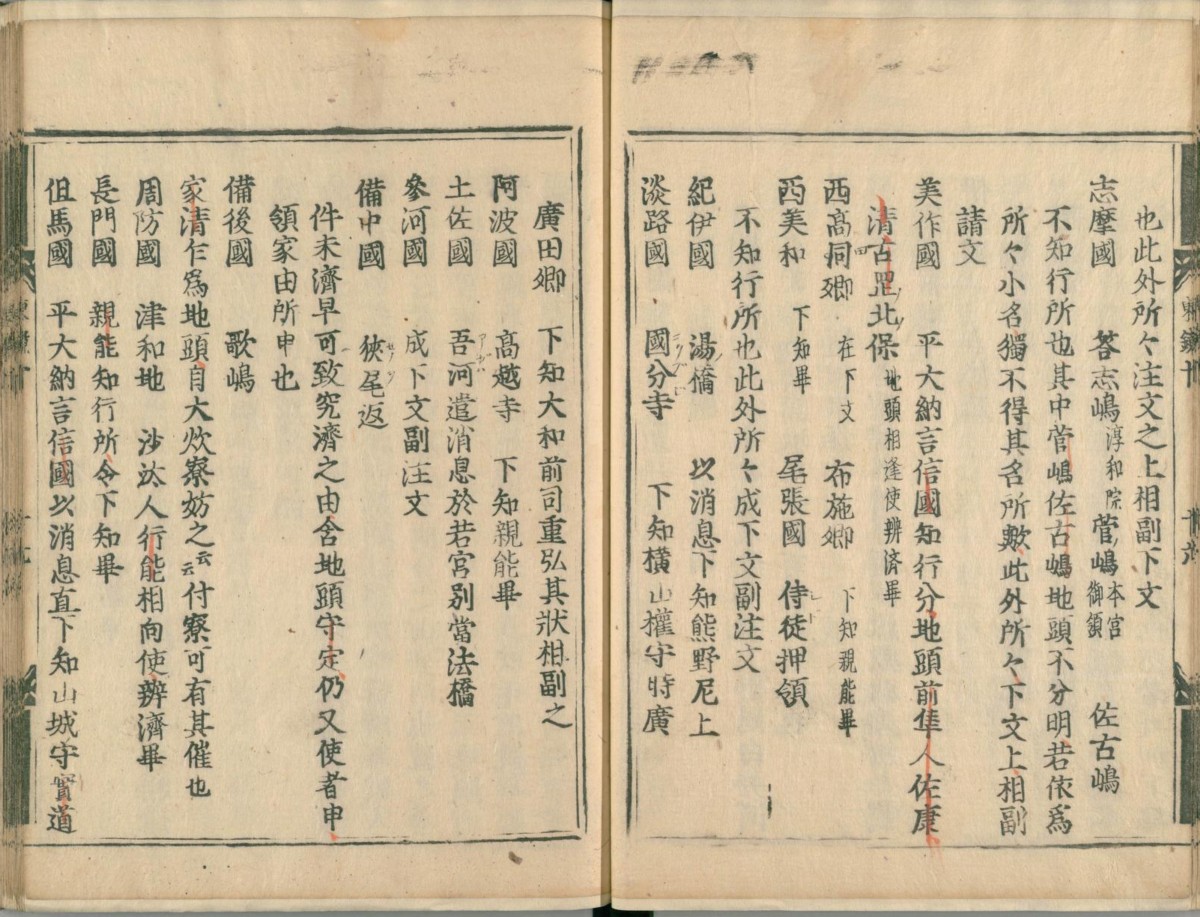 也此外所々注文之上相副下文
志摩國 答志嶋淳和院 菅嶋本宮御領 佐古嶋
不知行所也其中菅嶋佐古嶋地頭不分明若依爲
所々小名獨不得其名所歟此外所々下文上相副
請文
美作國 平大納言信國知行分地頭前隼人佐康
清古呂北保地頭相逢使辨済畢
西高洞郷在下文 布施郷下知親能畢
西美和下知畢 尾張國 侍徒押領
不知行所也此外所々成下文副注文
紀伊國 湯橋 以消息下知熊野尼上
淡路國 國分寺 下知横山權守時廣
廣田郷 下知大和前司重弘其状相副之
阿波國 高越寺 下知親能畢
土佐國 吾河遣消息於若宮別當法橋
參河國 成下文副注文
備中國 狹尾返
件未濟早可致究濟之由含地頭守定仍又使者申
領家由所申也
備後國 歌嶋
家清乍爲地頭自大炊寮妨之云云付寮可有其催也
周防國 津和地 沙汰人行能相向使辨濟畢
長門國 親能知行所令下知畢
但馬國 平大納言信國以消息直下知山城守實道